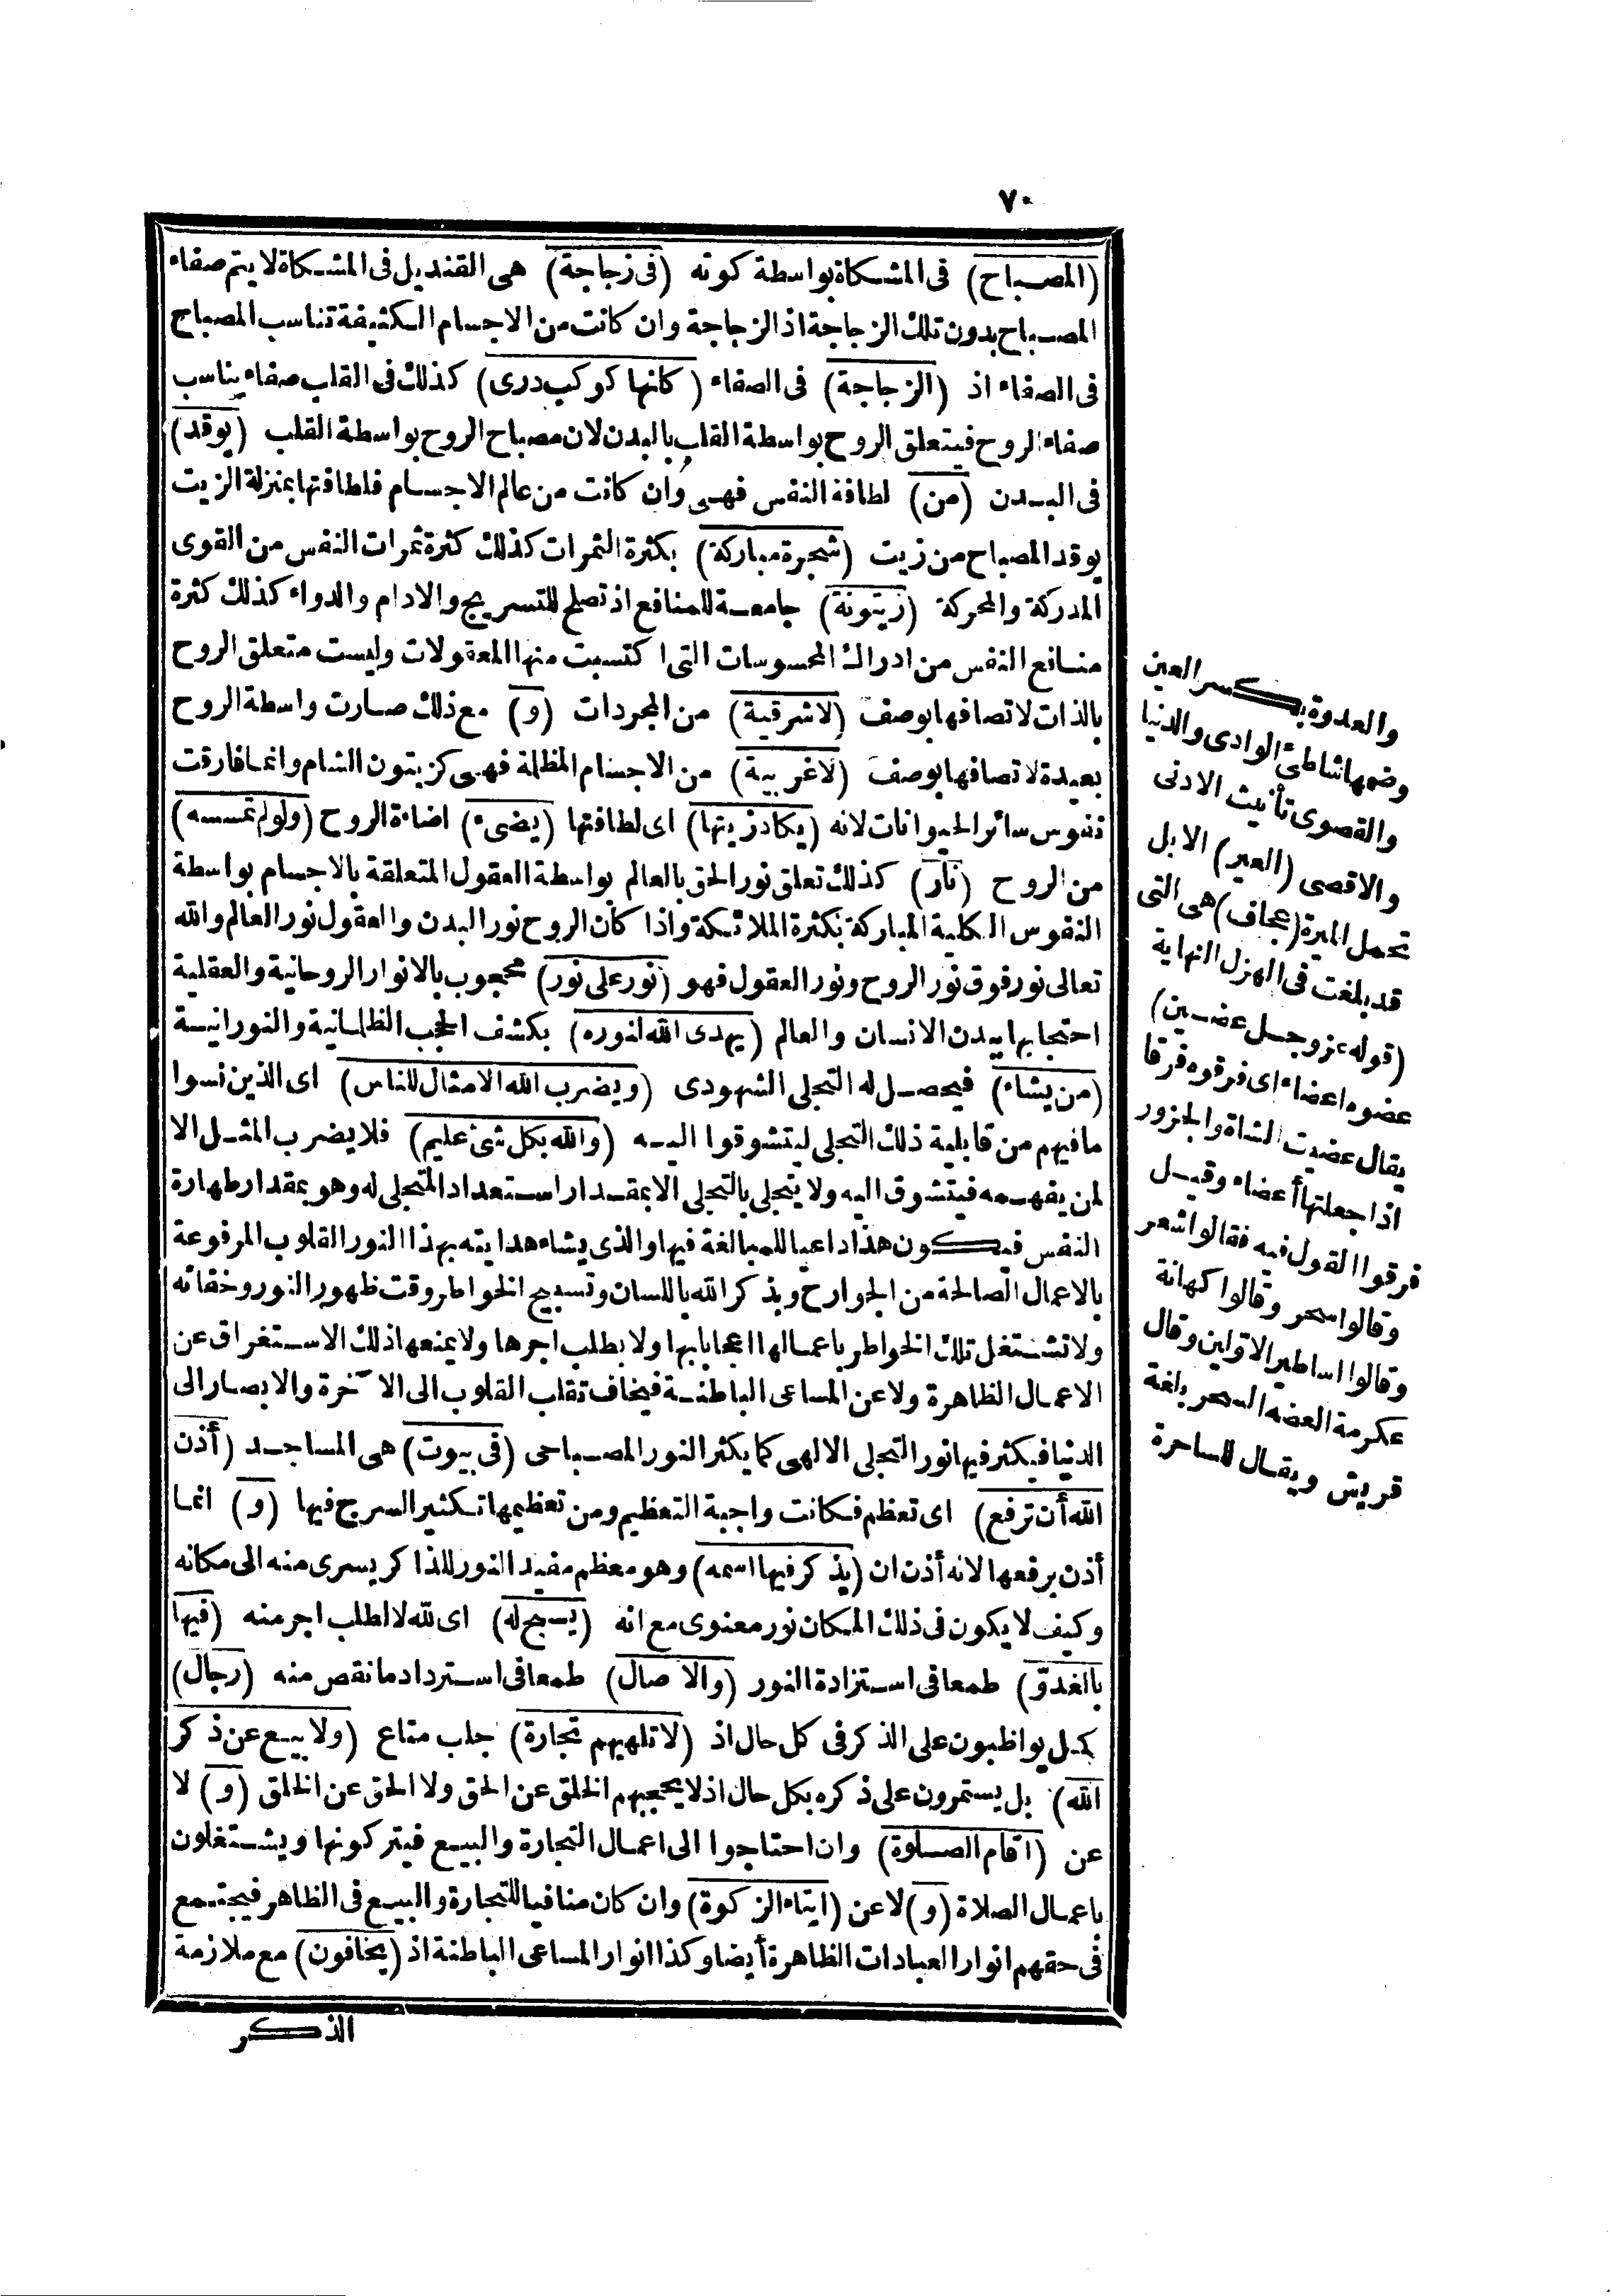 ٧٠
(المصباح) فى المشكاة بواسطة كونه (فى زجاجة) هى القنديل فى المشكاة لا يتم صفاء
المصباح بدون تلك الزجاجة اذ الزجاجة وان كانت من الاجسام الكثيفة تناسب المصباح
فى الصفاء اذ (الزجاجة) فى الصفاء (كانها كوكب درى) كذلك فى القلب صفاء يناسب
صفاء الروح فيتعلق الروح بواسطة القلب بالبدن لان مصباح الروح بواسطة القلب (يوقد)
فى البدن (من) لطافة النفس فهى وان كانت من عالم الاجسام فلطافتها بمنزلة الزيت
يوقد المصباح من زيت (شجرة مباركة) بكثرة الثمرات كذلك كثرة ثمرات النفس من القوى
المدركة والمحركة (زيتونة) جامعة للمنافع اذ تصلح للتسريج والادام والدواء كذلك كثرة
منافع النفس من ادراك المحسوسات التى اكتسبت منها المعقولات وليست متعلق الروح
بالذات لاتصافها بوصف (لاشرقية) من المجردات (و) مع ذلك صارت واسطة الروح
بعيدة لاتصافها بوصف (لاغربية) من الاجسام المظلمة فهى كزيتون الشام وانما فارقت
نفوس سائر الحيوانات لانه (يكاد زيتها) اى لطافتها (يضىء) اضاءة الروح (ولو لم تمسسه)
من الروح (نار) كذلك تعلق نور الحق بالعالم بواسطة العقول المتعلقة بالاجسام بواسطة
النفوس الكلية المباركة بكثرة الملائكة واذا كان الروح نور البدن والعقول نور العالم والله
تعالى نور فوق نور الروح ونور العقول فهو (نور على نور) محجوب بالانوار الروحانية والعقلية
احتجابها ببدن الانسان والعالم (يهدى الله لنوره) بكشف الحجب الظلمانية والنورانية
(من يشاء) فيحصل له التجلى الشهودى (ويضرب الله الامثال للناس) اى الذين نسوا
مافيهم من قابلية ذلك التجلى ليتشوقوا اليه (والله بكل شئ عليم) فلا يضرب المثل الا
لمن يفهمه فيتشوق اليه ولا يتجلى بالتجلى الا بمقدار استعداد المتجلى له وهو بمقدار طهارة
النفس فيكون هذا داعيا للمبالغة فيها والذى يشاء هدايته بهذا النور القلوب المرفوعة
بالاعمال الصالحة من الجوارح وبذكر الله باللسان وتسبيح الخواطر وقت ظهور النور وخفائه
ولا تشتغل تلك الخواطر باعمالها اعجابا بها ولا بطلب اجرها ولا يمنعها ذلك الاستغراق عن
الاعمال الظاهرة ولا عن المساعى الباطنة فيخاف تقلب القلوب الى الآخرة والابصار الى
الدنيا فيكثر فيها نور التجلى الالهى كما يكثر النور المصباحى (فى بيوت) هى المساجد (أذن
الله أن ترفع) اى تعظم فكانت واجبة التعظيم ومن تعظيمها تكثير السرج فيها (و) انما
أذن برفعها لانه أذن ان (يذكر فيها اسمه) وهو معظم مفيد النور للذاكر يسرى منه الى مكانه
وكيف لا يكون فى ذلك المكان نور معنوى مع انه (يسبح له) اى لله لا لطلب اجر منه (فيها
بالغدوّ) طمعا فى استزادة النور (والآصال) طمعا فى استرداد ما نقص منه (رجال)
كمل يواظبون على الذكر فى كل حال اذ (لا تلهيهم تجارة) جلب متاع (ولا بيع عن ذكر
الله) بل يستمرون على ذكره بكل حال اذ لا يحجبهم الخلق عن الحق ولا الحق عن الخلق (و) لا
عن (اقام الصلوة) وان احتاجوا الى اعمال التجارة والبيع فيتركونها ويشتغلون
باعمال الصلاة (و) لا عن (ايتاء الزكوة) وان كان منافيا للتجارة والبيع فى الظاهر فيجتمع
فى حقهم انوار العبادات الظاهرة أيضا وكذا انوار المساعى الباطنة اذ (يخافون) مع ملازمة
الذكر
والعدوة بكسر العين
وضمها شاطئ الوادى والدنيا
والقصوى تأنيث الادنى
والاقصى (العير) الابل
تحمل الميرة (عجاف) هى التى
قد بلغت فى الهزل النهاية
(قوله عز وجل عضين)
عضوه اعضاء اى فرقوه فرقا
يقال عضيت الشاة والجزور
اذا جعلتها أعضاء وقيل
فرقوا القول فيه فقالوا شعر
وقالوا سحر وقالوا كهانة
وقالوا اساطير الاوّلين وقال
عكرمة العضه السحر بلغة
قريش ويقال للساحرة